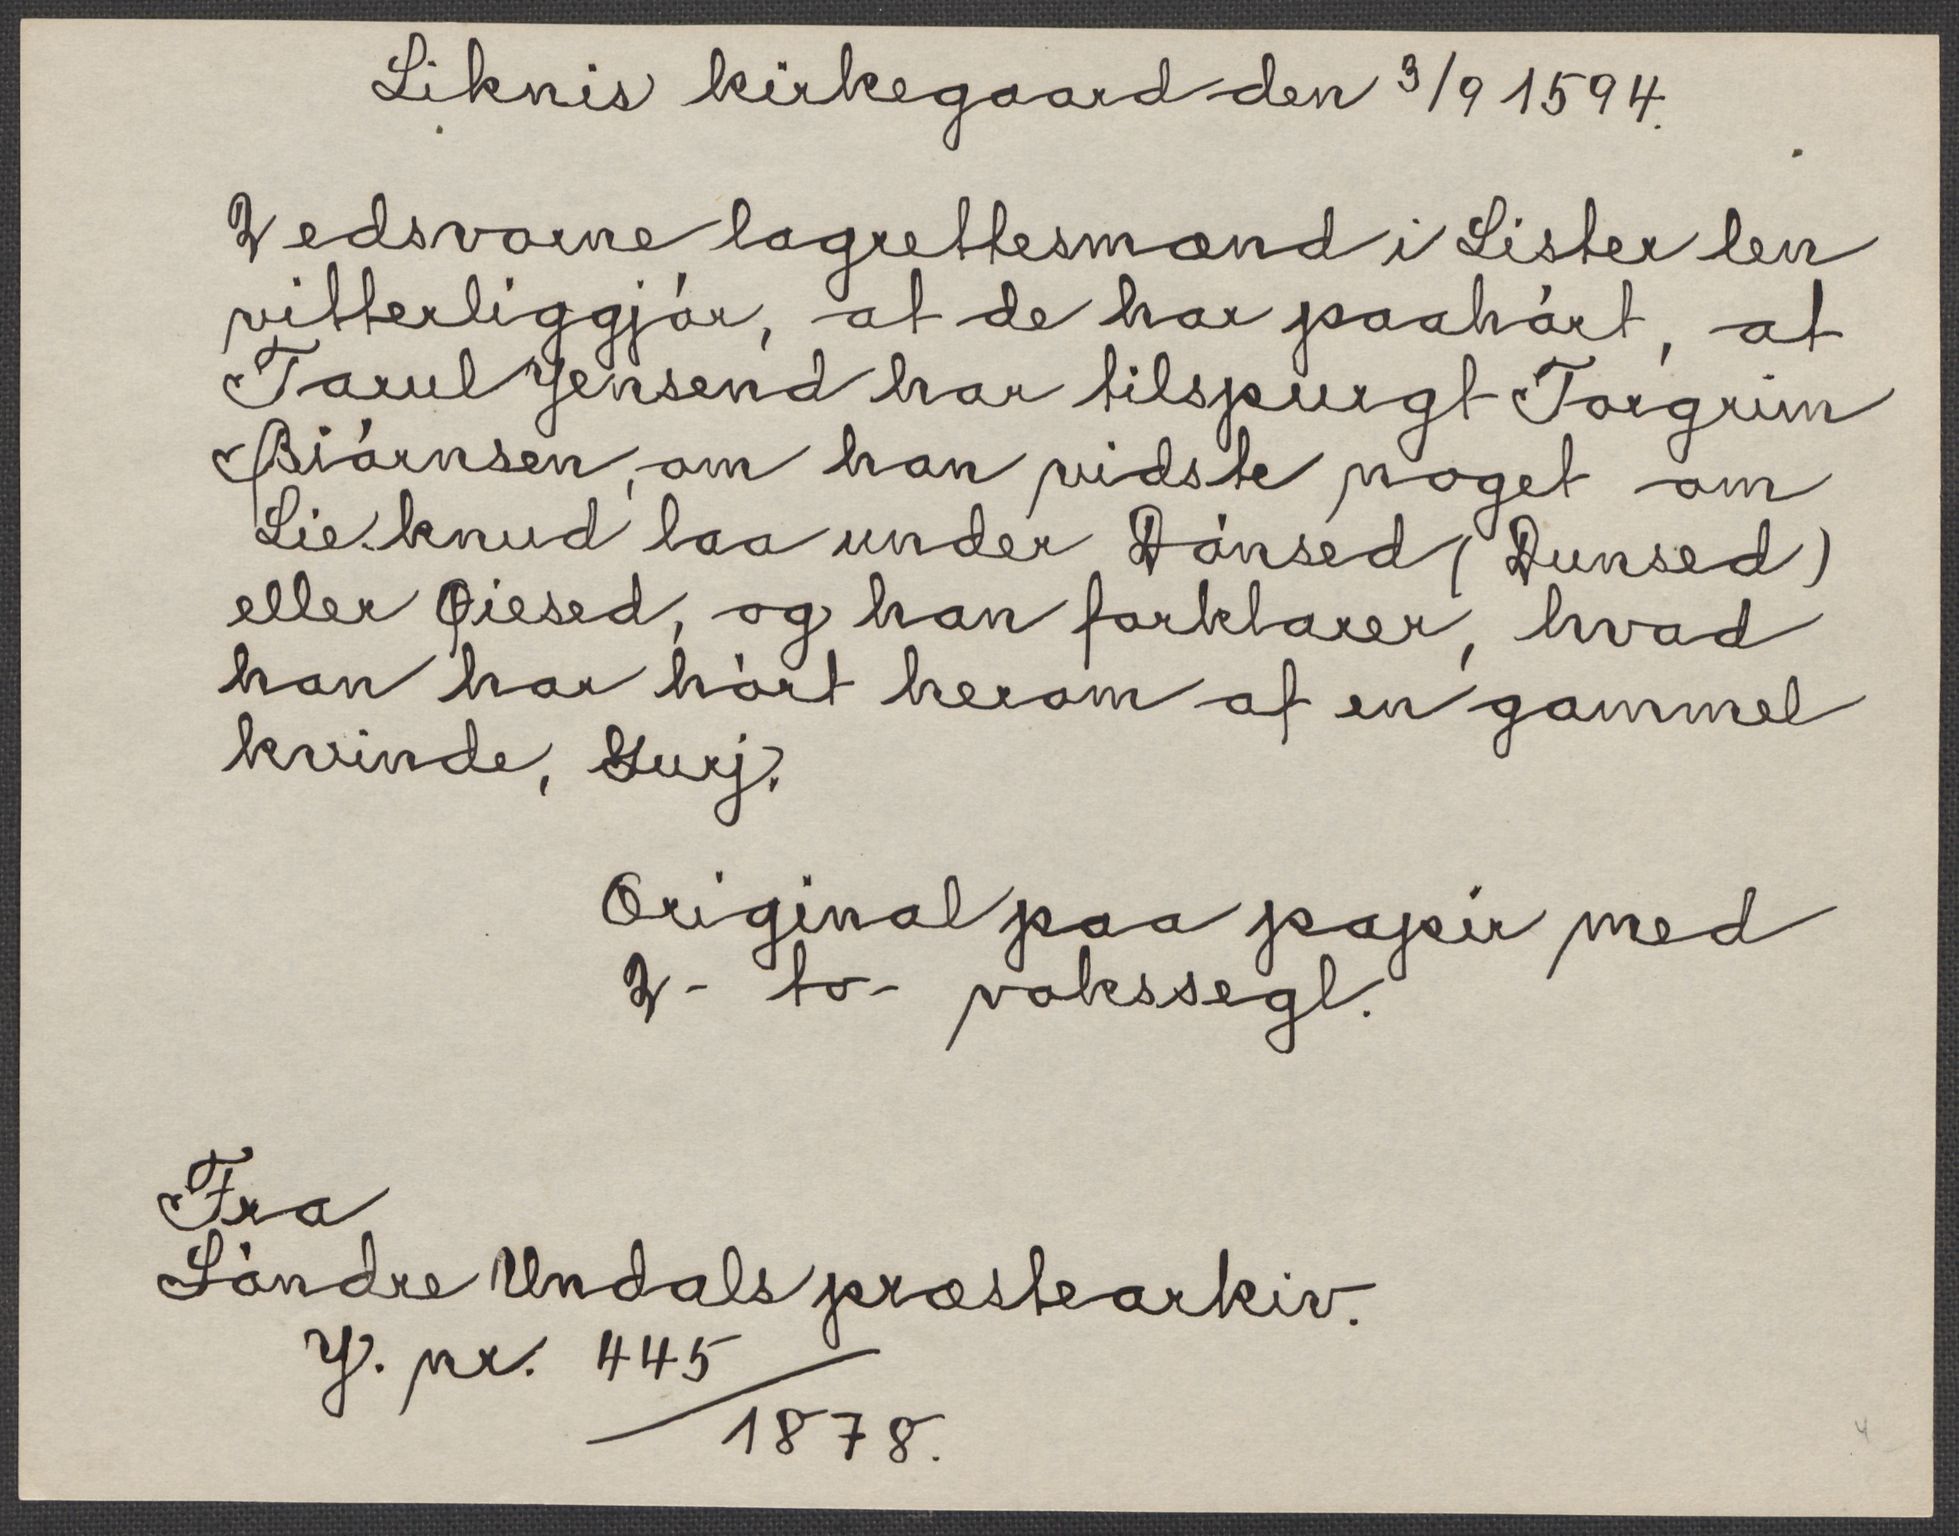 Liknis kirkegaard den 3/9 1594.
2 edsvorne lagrettesmænd i Lister len
vitterliggjór, at de har paahórt, at
Tarul Yensend har tilspurgt Torgrim
Biórnsen, om han vidste noget om
Lie.knud laa under Dónsed (Dunsed)
eller Øiesed, og han forklarer, hvad
han har hórt herom af en gammel
kvinde, Gurj.
Original paa papir med
2 - to - vokssegl.
Fra
Sóndre Undals præstearkiv.
Y. nr. 445/1878.
4